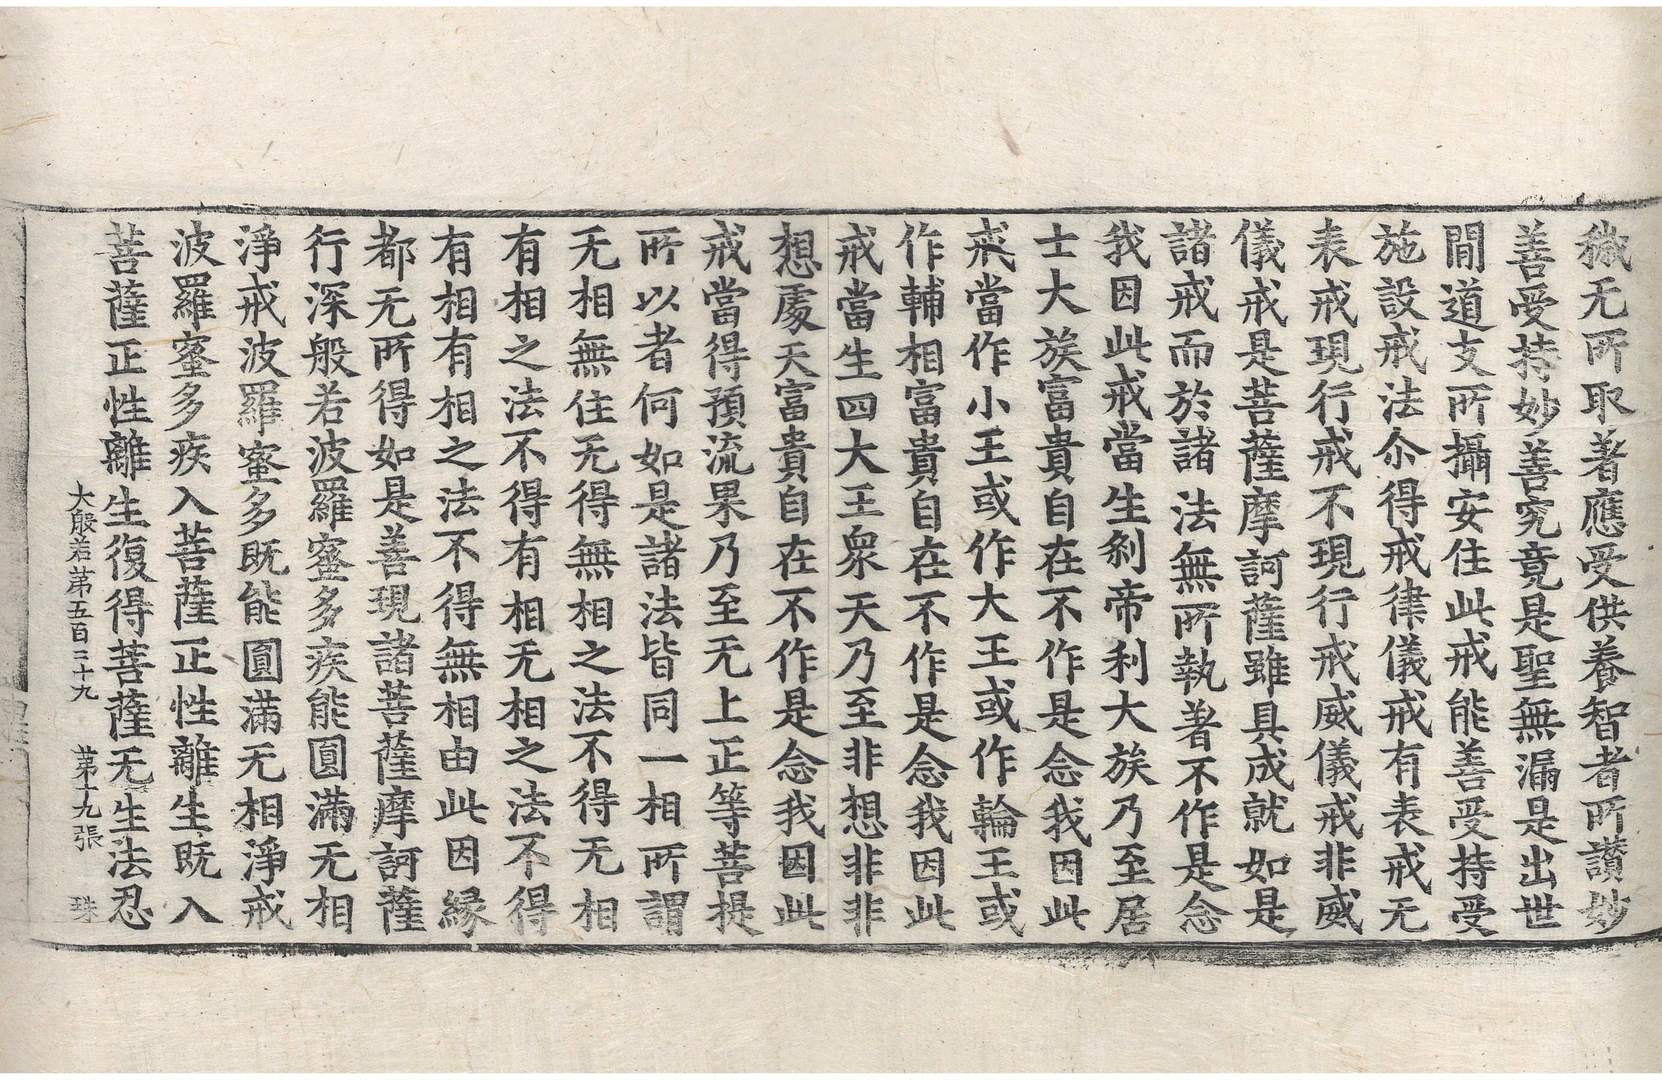 穢无所取著應受供養智者所讃妙
善受持妙善究竟是聖無漏是出世
間道支所攝安住此戒能善受持受
施設戒法尒得戒律儀戒有表戒无
表戒現行戒不現行戒威儀戒非威
儀戒是菩薩摩訶薩雖具成就如是
諸戒而於諸法無所執著不作是念
我因此戒當生刹帝利大族乃至居
士大族富貴自在不作是念我因此
戒當作小王或作大王或作輪王或
作輔相富貴自在不作是念我因此
戒當生四大王衆天乃至非想非非
想處天富貴自在不作是念我因此
戒當得預流果乃至无上正等菩提
所以者何如是諸法皆同一相所謂
无相無住无得無相之法不得无相
有相之法不得有相无相之法不得
有相有相之法不得無相由此因緣
都无所得如是善現諸菩薩摩訶薩
行深般若波羅蜜多疾能圓滿无相
淨戒波羅蜜多既能圓滿无相淨戒
波羅蜜多疾入菩薩正性離生既入
菩薩正性離生復得菩薩无生法忍
大般若第五百三十九 第十九張 珠